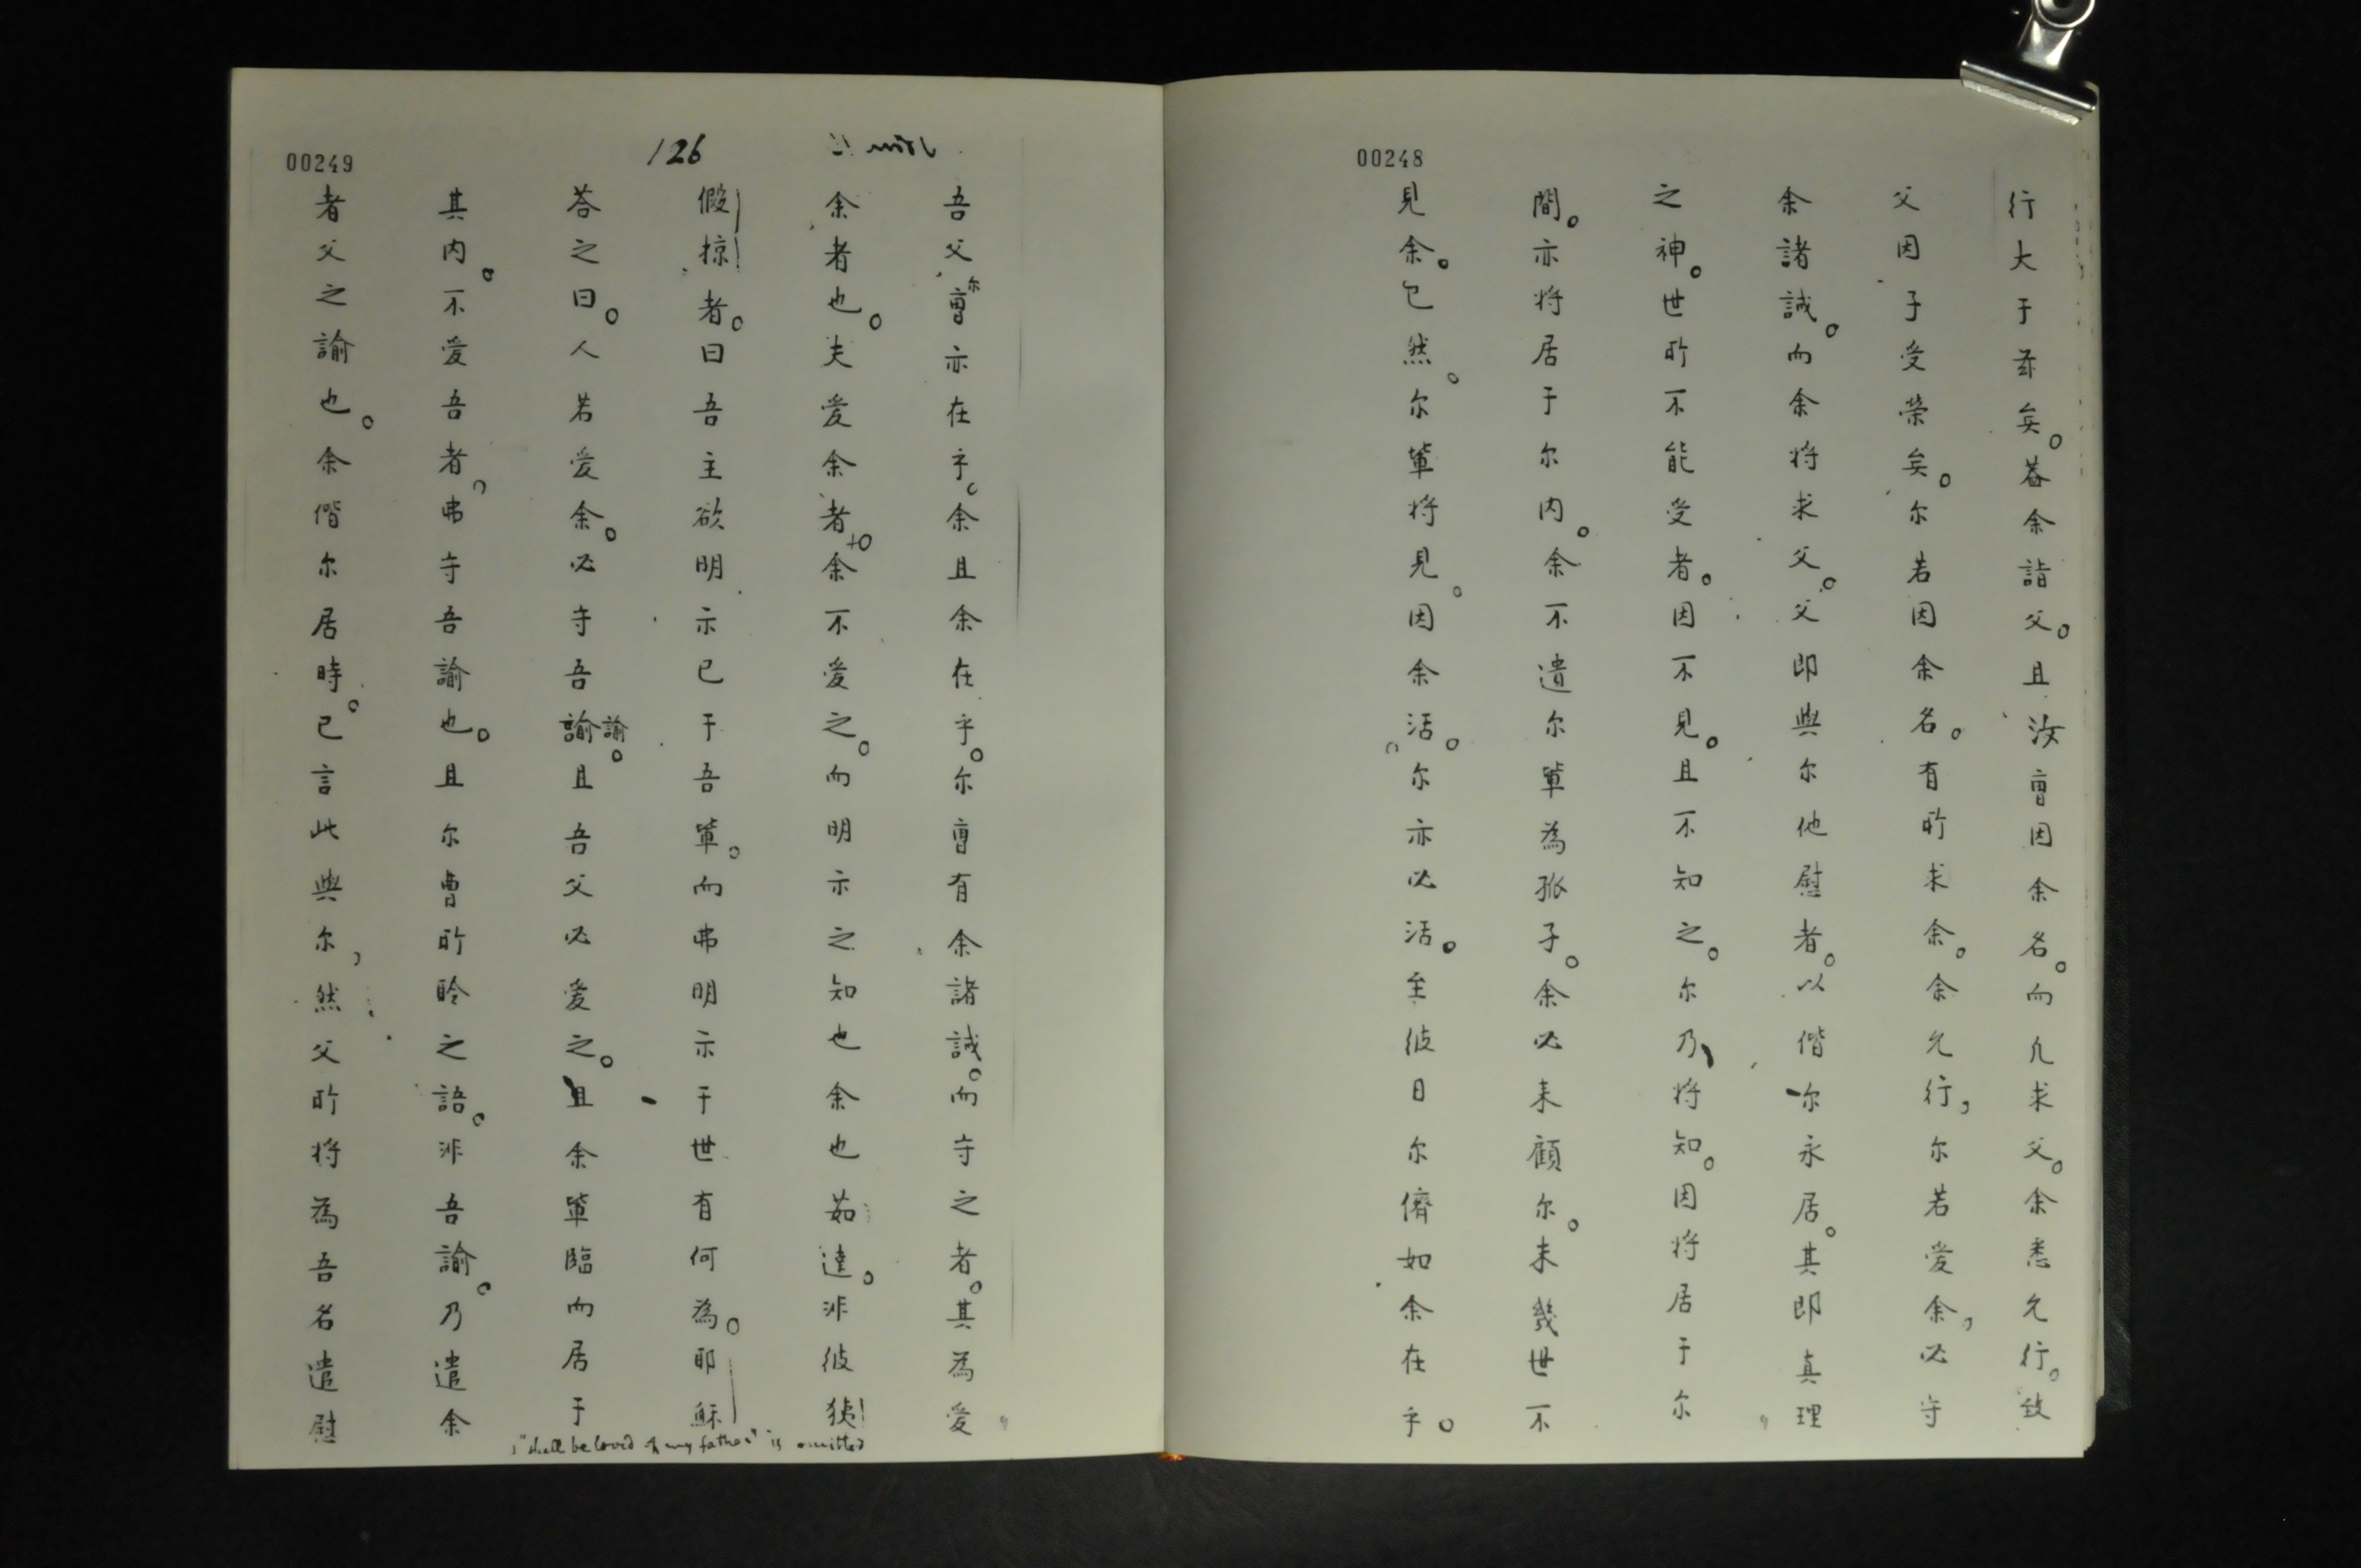 00248
行大于茲矣。蓋余詣父。且汝曹因余名。而凢求父。余悉允行。致
父因子受榮矣。尔若因余名。有所求余。余允行，尔若爱余，必守
余諸誡。而余将求父。父即與尔他慰者。以偕尔永居。其即真理
之神。世所不能受者。因不見。且不知之。尔乃将知。因将居于尔
間。亦将居于尔内。余不遣尔軰為孤子。余必来顧尔。未幾世不
見余。已然。尔軰将見。因余活。尔亦必活。至彼日尔儕如余在乎。
00249
126
吾父尔曹亦在乎。余且余在乎。尔曹有余諸誡。而守之者。其為爱
余者也。夫爱余者+。余不爱之。而明示之知也余也茹達。非彼
假掠者。曰吾主欲明示已于吾軰。而弗明示于世有何為。耶穌
荅之曰。人若爱余。必守吾諭諭。且吾父必爱之。且余軰臨而居于
其内。不爱吾者。弗守吾諭也。且尔曹所聆之語。非吾諭。乃遣余
者父之諭也。余偕尔居時。已言此與尔，然父所将為吾名遣慰
"shall be loved of my father" is omitted